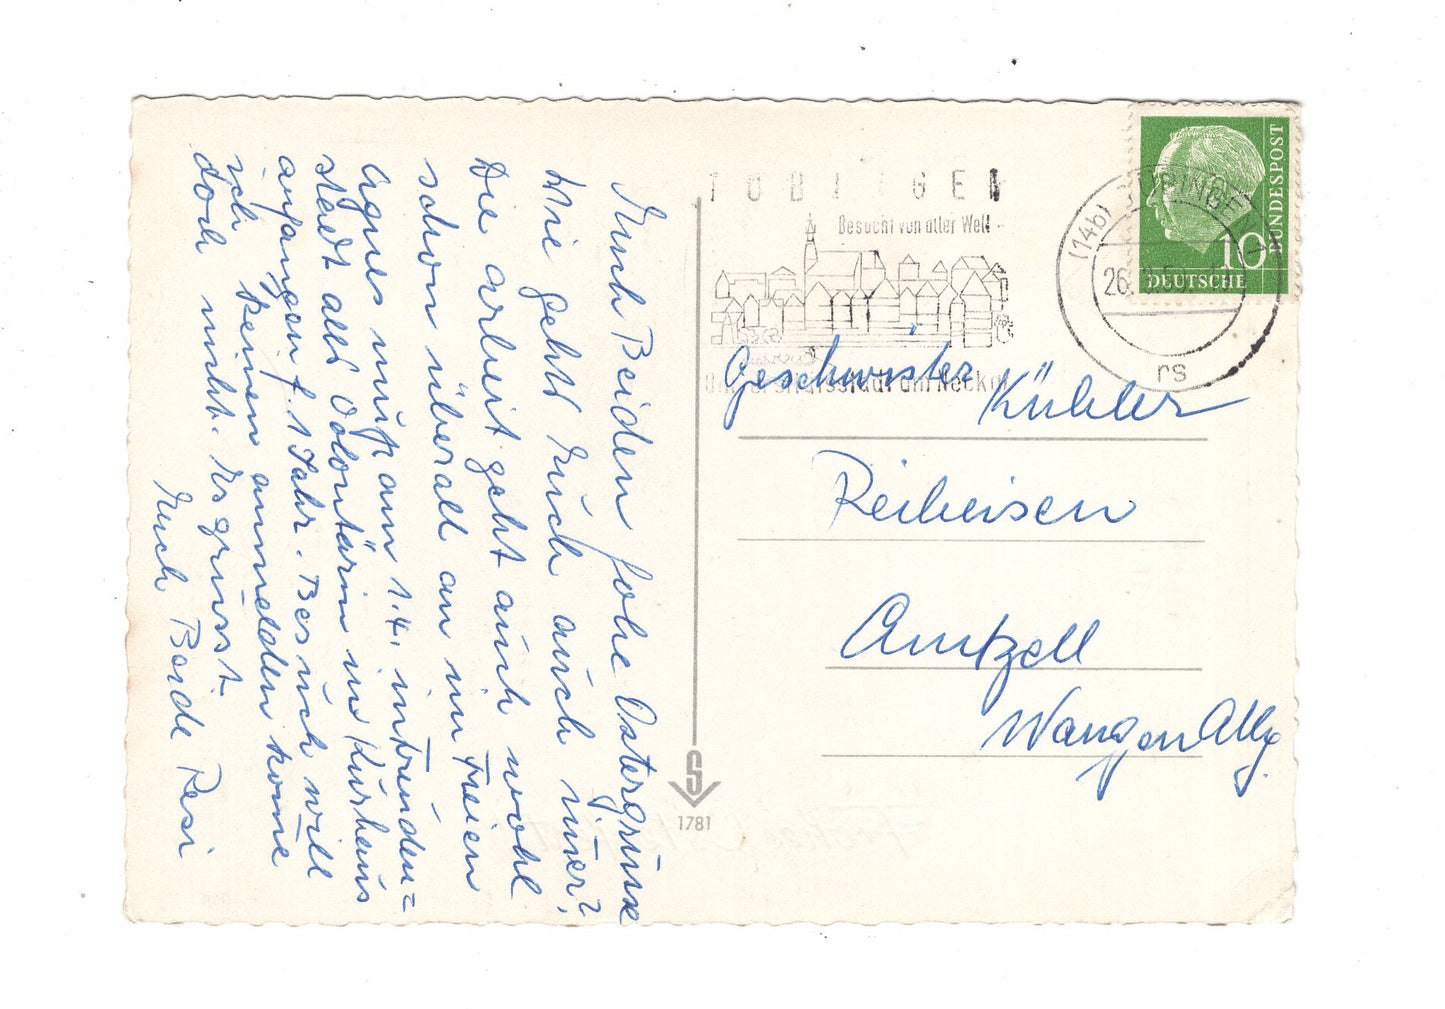 Euch Beiden frohe Ostergrüsse
Wie geht Euch auch im̅er?
Die Arbeit geht auch wohl
schon überall an im Freien
Agnes muß am 1.4. in Freuden=
stadt als Volontärin im Kurhaus
anfangen f. 1 Jahr. Besuch will
ich keinen anmelden kom̅e
doch nicht. Es grüsst
Euch Beide Resi
TÜBINGEN
Besucht von aller Welt
Universitätsstadt am Neckar
(14b) TÜBINGEN
26.
rs
10
DEUTSCHE
BUNDESPOST
Geschwister Kühler
Reiheisen
Amtzell
Wangen Allg.
S
1781